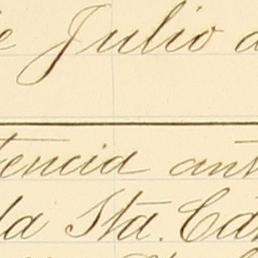 e Julio d
tencia ant
la Sta. Ca